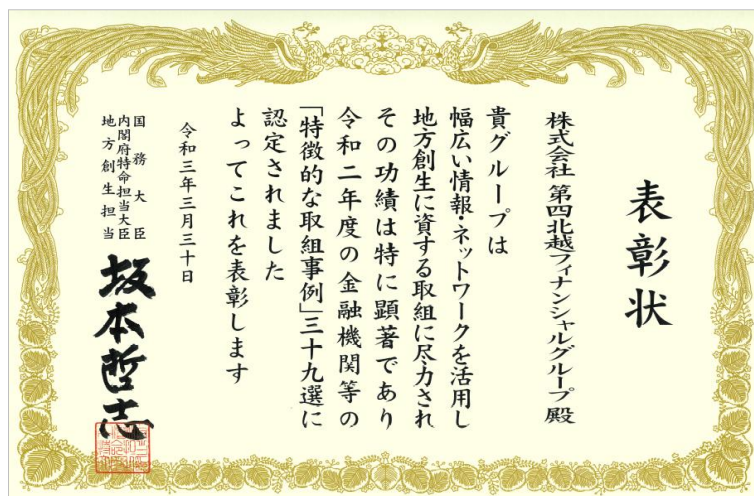 表彰状
株式会社 第四北越フィナンシャルグループ 殿
貴グループは
幅広い情報・ネットワークを活用し
地方創生に資する取組に尽力され
その功績は特に顕著であり
令和二年度の金融機関等の
「特徴的な取組事例」三十九選に
認定されました
よってこれを表彰します
令和三年三月三十日
国務大臣
内閣府特命担当大臣
地方創生担当
坂本哲志